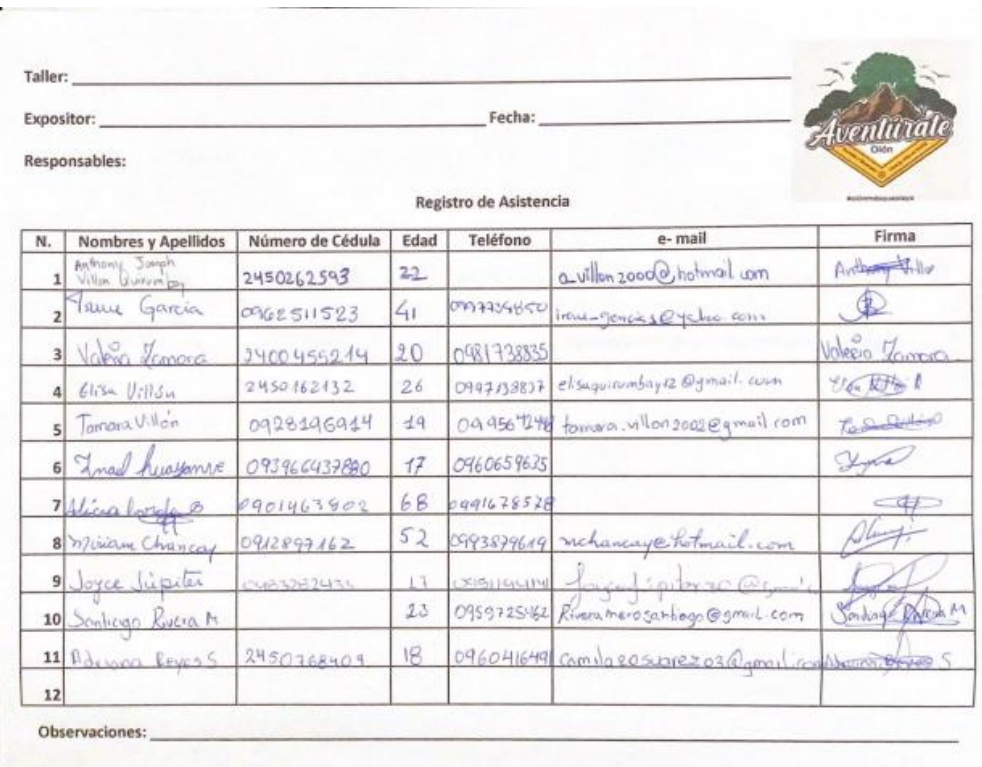 Taller:
Aventúrate
Olón
Expositor: Fecha:
Responsables:
Registro de Asistencia
N. Nombres y Apellidos Número de Cédula Edad Teléfono e- mail Firma
1 Anthony Joseph Villon Quirumbay 2450262593 22 a_villon2000@hotmail.com Anthony Villo
2 Irene Garcia 0962511523 41
3 Valeria Zamora 2400455214 20 0981738835 Valeria Zamora
4 Elisa Villón 2450162132 26 0997138837 elisaquirumbay12@gmail.com
5 Tamara Villón 0928196914 19 tamara.villon2002@gmail.com
6 093966437880 17 0960659635
7 Alicia 0901463802 68 0991678528
8 Miriam Chancay 0912897162 52 0993879619 mchancay@hotmail.com
9 Joyce Júpiter 17
10 Santiago Rivera M 23 0959725462 Riveramerosantiago@gmail.com Santiago Rivera M
11 Adriana Reyes S 2450768409 18 096041649 camila20suarez03@gmail.com
12
Observaciones: